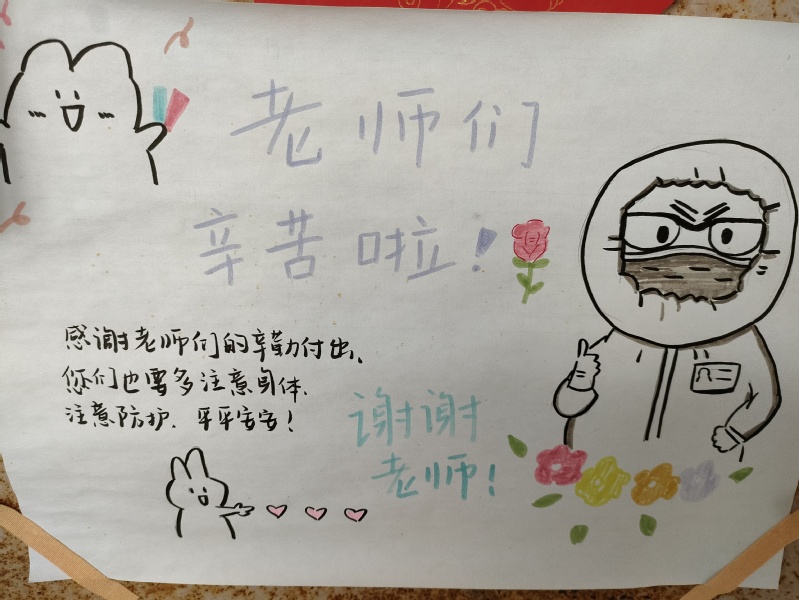 老师们
辛苦啦！
感谢老师们的辛勤付出、
您们也要多注意身体、
注意防护、平平安安！
谢谢
老师！